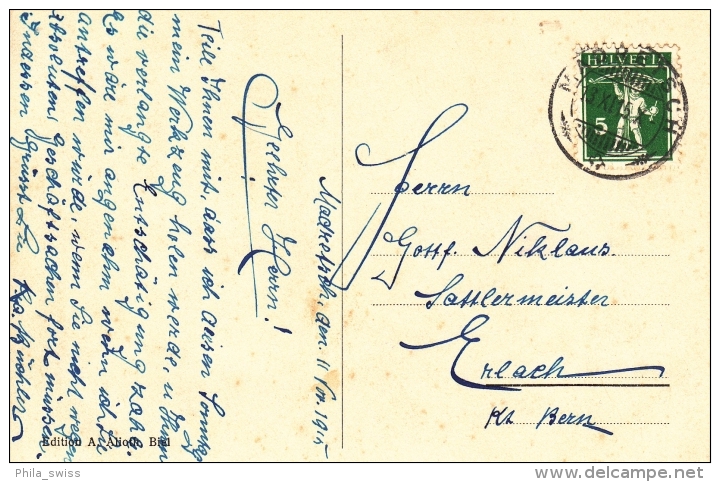 Madretsch, den 11 Nov 1915
Geehrter Herrn!
Teile Ihnen mit, dass ich diesen Sonntag
mein Werkzeug holen werde, u Ihnen
die verlangte Entschädigung zahl.
Es wäre mir angenehm wenn ich Sie
antreffen würde, wenn Sie nicht wegen
Geschäftsachen fort müssen.
Indessen grüsst Sie
Herrn
Gottf. Niklaus
Sattlermeister
Erlach
Kt. Bern
HELVETIA
5
Edition A. Alioth, Biel
Phila_swiss
delcampe.net